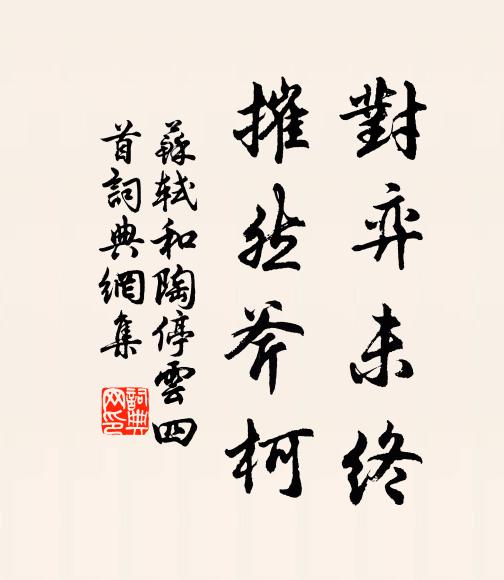 對弈未終
摧然斧柯
蘇軾和陶停雲四
首詞典網集
詞典
网印